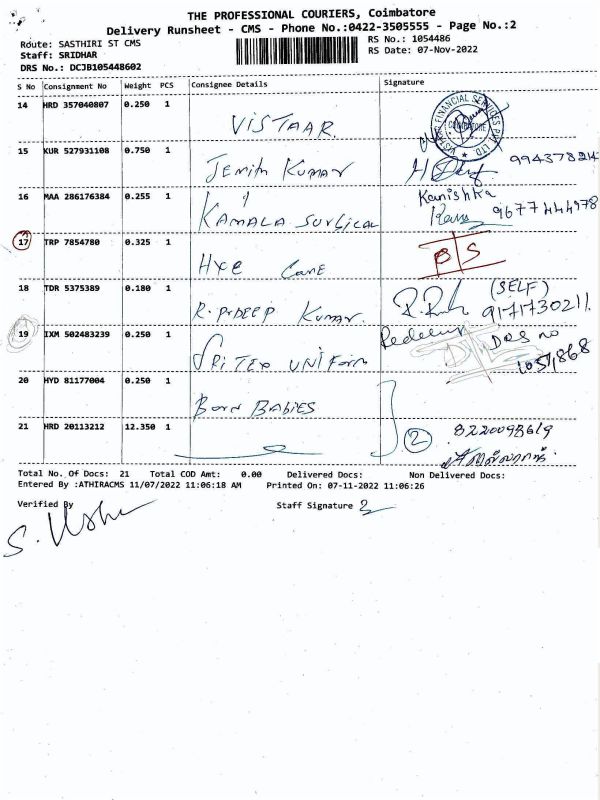 THE PROFESSIONAL COURIERS, Coimbatore
Delivery Runsheet - CMS - Phone No.:0422-3505555 - Page No.:2
Route: SASTHIRI ST CMS
RS No.: 1054486
Staff: SRIDHAR
RS Date: 07-Nov-2022
DRS No.: DCJB105448602
S No Consignment No Weight PCS Consignee Details Signature
14 HRD 357040807 0.250 1 VISTAAR
FINANCIAL SERVICES COIMBATORE
15 KUR 527931108 0.750 1 Jemith Kumar
16 MAA 286176384 0.255 1 Kamala Surgical Kanishka
9677444978
17 TRP 7854780 0.325 1 Hxe Care
18 TDR 5375389 0.180 1 R. Prdeep Kumar (SELF)
9171730211
19 IXM 502483239 0.250 1 Sri Tex Uniform DRS no
20 HYD 81177004 0.250 1 Born Babies
21 HRD 20113212 12.350 1 2 8220098619
Total No. Of Docs: 21 Total COD Amt: 0.00 Delivered Docs: Non Delivered Docs:
Entered By :ATHIRACMS 11/07/2022 11:06:18 AM Printed On: 07-11-2022 11:06:26
Verified By Staff Signature
S. Usha